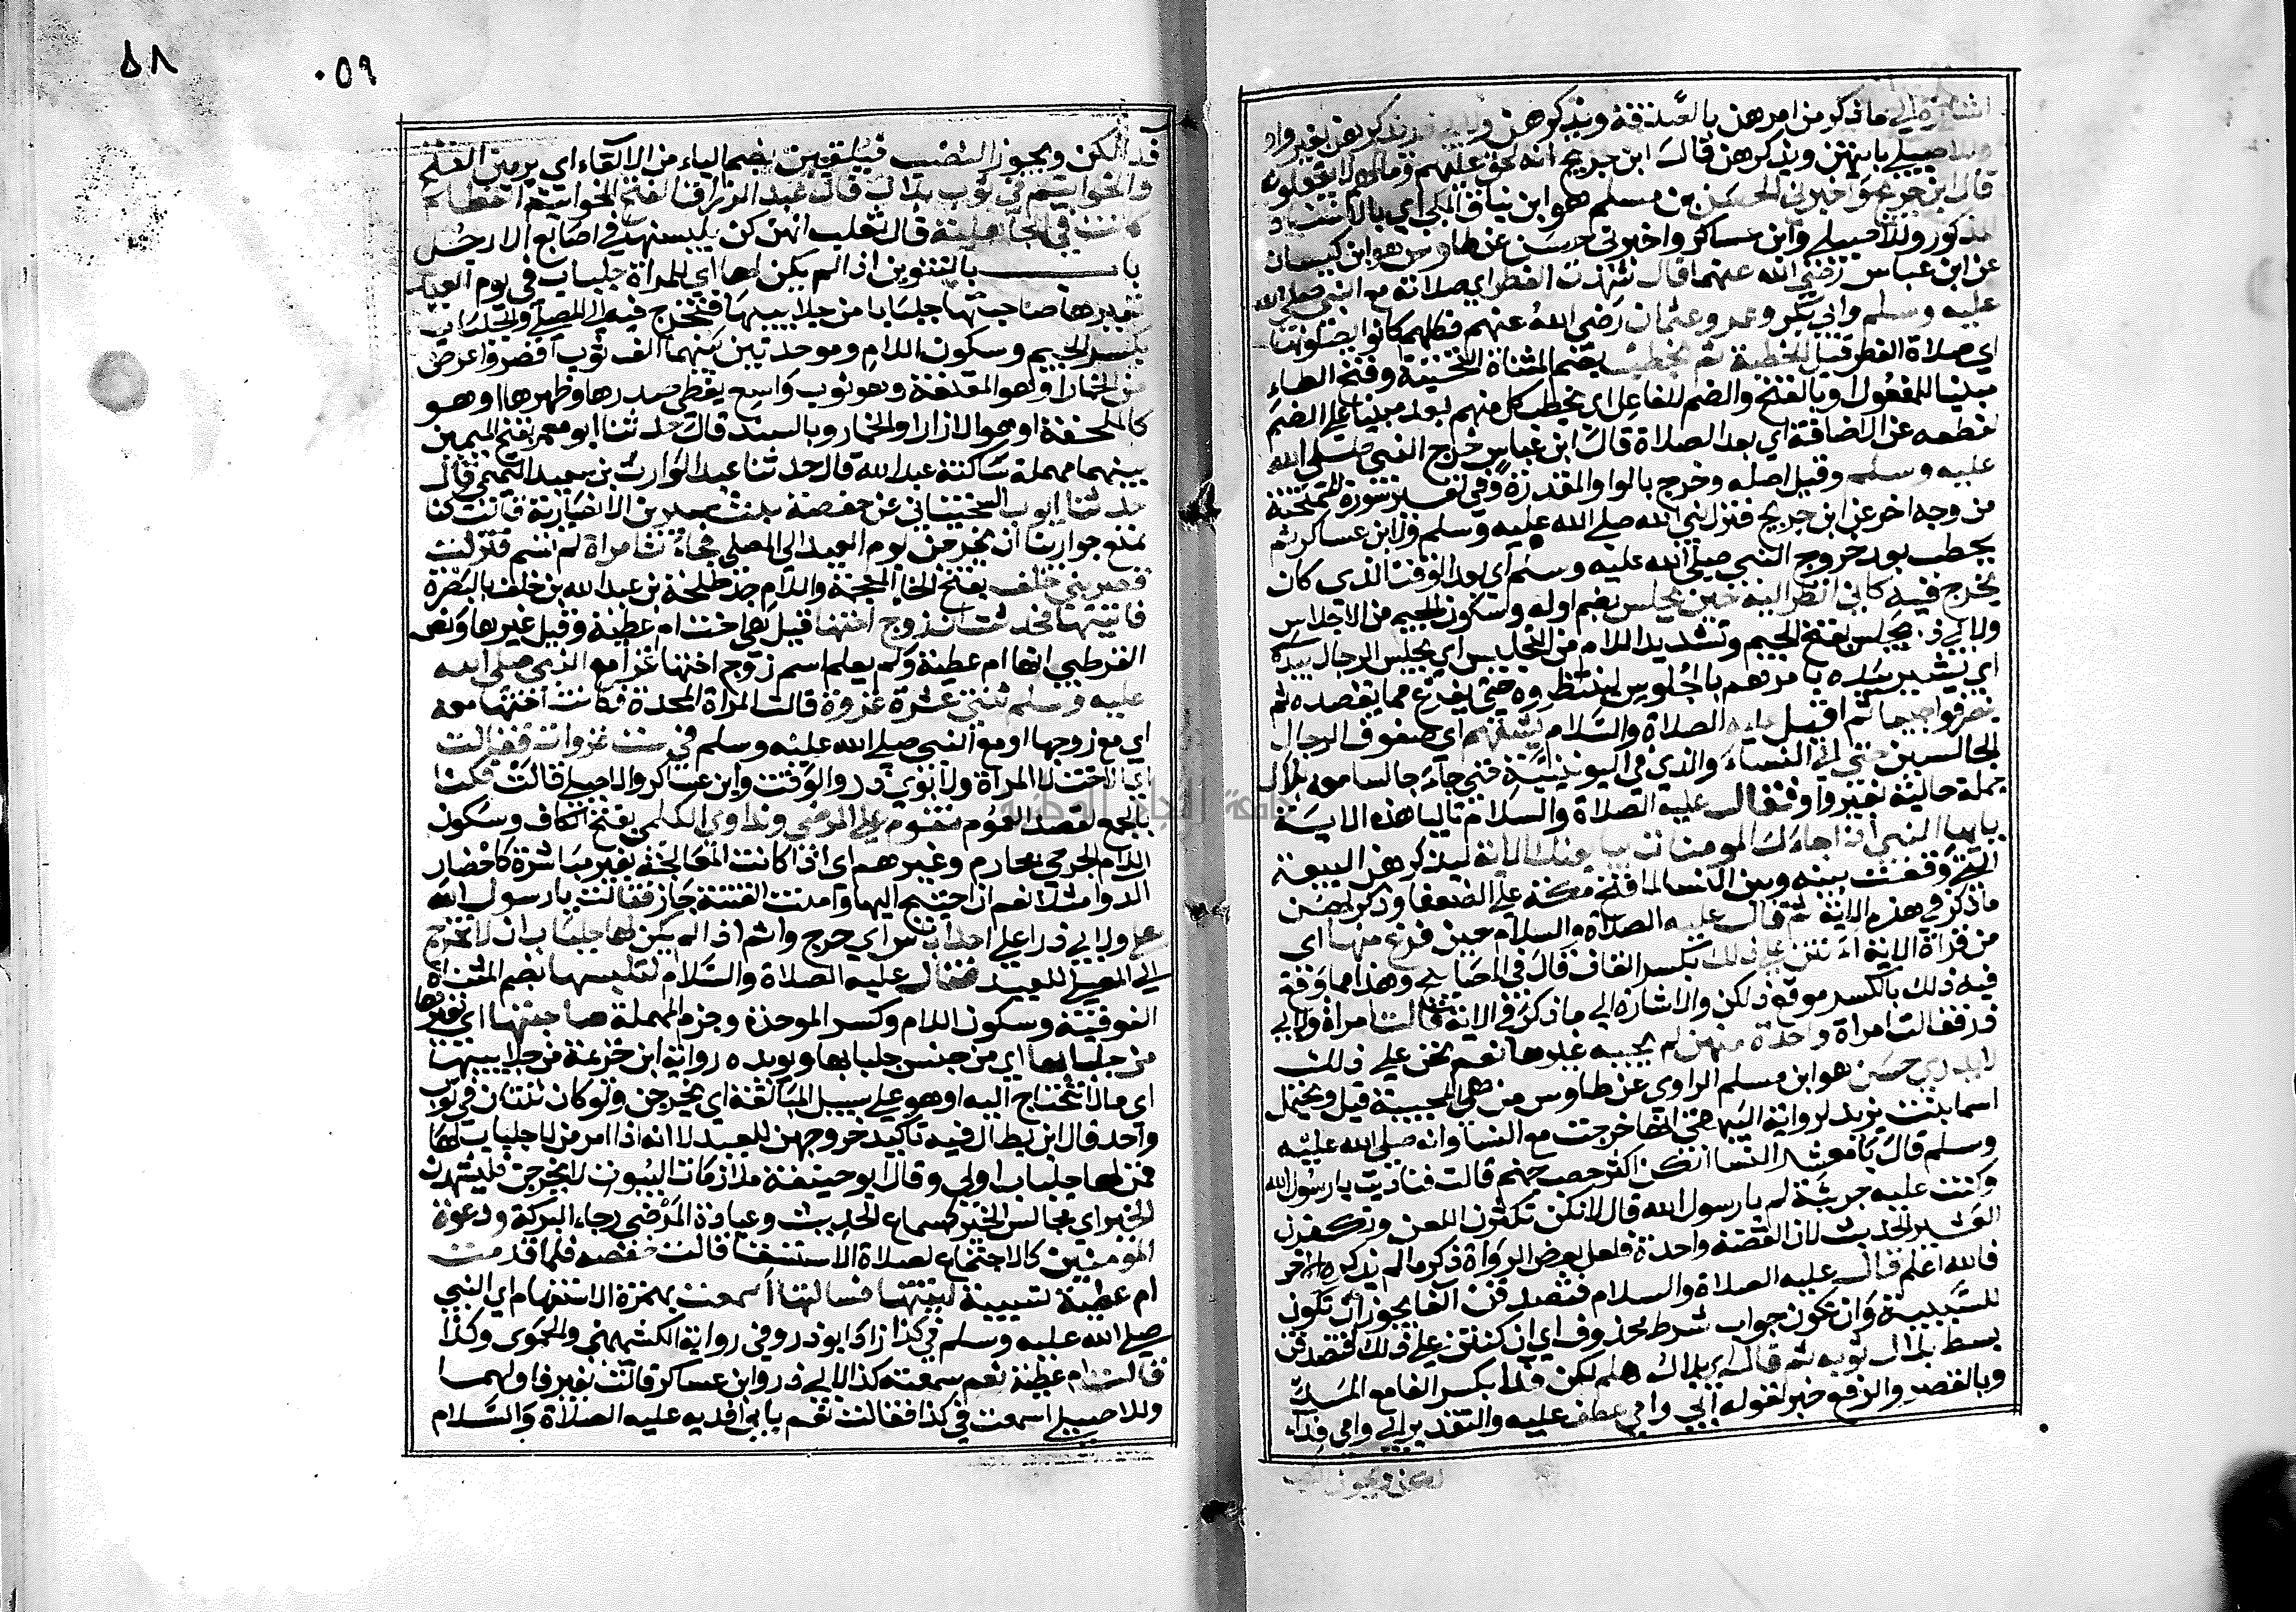 اشارة الي ما ذكر من امرهن بالصدقة ويذكرهن ولابي ذر يذكرهن بغير واو
وللاصيلي باتيهن ويذكرهن قال ابن جريج انه لحق عليهم ومالهم لا يفعلونه
قال ابن جريج واخبرني الحسن بن مسلم هو ابن يناق المكي اي بالاسناد
المذكور وللاصيلي وابن عساكر واخبرني حسن عن طاوس هو ابن كيسان
عن ابن عباس رضي الله عنهما قال شهدت الفطر اي صلاته مع النبي صلي الله
عليه وسلم وابي بكر وعمر وعثمان رضي الله عنهم فكلهم كانوا يصلونها
اي صلاة الفطر قبل الخطبة ثم يخطب بضم المثناة التحتية وفتح الطاء
مبنيا للمفعول او بالفتح والضم للفاعل اي يخطب كل منهم بعد مبنيا علي الضم
لقطعه عن الاضافة اي بعد الصلاة قال ابن عباس خرج النبي صلي الله
عليه وسلم وقيل اصله وخرج بالواو المقدرة وفي تفسير سورة الممتحنة
من وجه اخر عن ابن جريج فنزل نبي الله صلي الله عليه وسلم ولابن عساكر ثم
يخطب بعد خروج النبي صلي الله عليه وسلم اي بعد الوقت الذي كان
يخرج فيه كاني انظر اليه حين يجلس بضم اوله وسكون الجيم من الاجلاس
ولابي ذر يجلس بفتح الجيم وتشديد اللام من التجليس اي يجلس الرجال بيده
اي يشير بيده يامرهم بالجلوس لينتظروه حتي يفرغ مما يقصده ثم
ينصرفوا جميعا ثم اقبل عليه الصلاة والسلام يشقهم اي صفوف الرجال
الجالسين حتي اتي النساء والذي في اليونينية حتي جاء جالسا معه بلال
جملة حالية بغير واو فقال عليه الصلاة والسلام تاليا هذه الاية
يا ايها النبي اذا جاءك المومنات يبايعنك الاية ليذكرهن البيعة
التي وقعت بينه وبين النسا لما فتح مكة علي الصفا وذكر لهن
ما ذكر في هذه الاية ثم قال عليه الصلاة والسلام حين فرغ منها اي
من قراة الاية انتن علي ذلك بكسر الكاف قال في المصابيح وهذا مما وقع
فيه ذلك بالكسر موقع ذلكن والاشارة الي ما ذكر في الاية قالت امراة ولابي
ذر فقالت امراة واحدة منهن لم يجبه غيرها نعم نحن علي ذلك
لا يدري حسن هو ابن مسلم الراوي عن طاوس من هي المجيبة قيل ويحتمل
اسما بنت يزيد لرواية البيهقي انها خرجت مع النسا وانه صلي الله عليه
وسلم قال يا معشر النسا انكن اكثر حصب جهنم قالت فناديت يا رسول الله
وكنت عليه جريئة لم يا رسول الله قال لانكن تكثرن اللعن وتكفرن
العشير الحديث لان القصة واحدة فلعل بعض الرواة ذكر ما لم يذكره الاخر
فالله اعلم قال عليه الصلاة والسلام فتصدقن الفا يجوز ان تكون
للسببية وان تكون جواب شرط محذوف اي ان كنتن علي ذلك فتصدقن
بسط بلال ثوبه ثم قال اي بلال هلم لكن فدا بكسر الفا مع المد
وبالقصر والرفع خبر لقوله ابي وامي عطف عليه والتقدير ابي وامي فداء
لكن ويجوز النصب
٥٨
٠٥٩
فدا لكن ويجوز النصب فيلقين بضم الياء من الالقاء اي يرمين الفتخ
والخواتيم في ثوب بلال قال عبد الرزاق الفتخ الخواتيم العظام
كانت في الجاهلية قال ثعلب انهن كن يلبسنها في اصابع الارجل
باب بالتنوين اذا لم يكن لها اي للمراة جلباب في يوم العيد
تعيرها صاحبتها جلبابا من جلابيبها فتخرج فيه الي المصلي والجلباب
بكسر الجيم وسكون اللام وموحدتين بينهما الف ثوب اقصر واعرض
من الخمار او هو المقنعة وهو ثوب واسع يغطي صدرها وظهرها او هو
كالملحفة او هو الازار او الخمار وبالسند قال حدثنا ابو معمر بفتح الميمين
بينهما مهملة ساكنة عبد الله قال حدثنا عبد الوارث بن سعيد التميمي قال
حدثنا ايوب السختياني عن حفصة بنت سيرين الانصارية قالت كنا
نمنع جوارينا ان يخرجن يوم العيد الي المصلي فجاءت امراة لم تسم فنزلت
قصر بني خلف بفتح الخا المعجمة واللام جد طلحة بن عبد الله بن خلف بالبصرة
فاتيتها فحدثت ان زوج اختها قيل هي اخت ام عطية وقيل غيرها ونص
القرطبي انها ام عطية ولم يعلم اسم زوج اختها غزا مع النبي صلي الله
عليه وسلم ثنتي عشرة غزوة قالت المراة المحدثة فكانت اختها معه
اي مع زوجها او مع النبي صلي الله عليه وسلم في ست غزوات فقالت
اي الاخت لا المراة ولابوي ذر والوقت وابن عساكر والاصيلي قالت فكنا
بالجمع لقصد العموم نقوم علي المرضي ونداوي الكلمي بفتح الكاف وسكون
اللام الجرحي محارم وغيرهم اي اذا كانت المعالجة بغير مباشرة كاحضار
الدوا مثلا نعم ان احتيج اليها وامنت الفتنة جاز فقالت يا رسول الله
علي ولابي ذر اعلي احدانا باس اي حرج واثم اذا لم يكن لها جلباب ان لا تخرج
الي المصلي للعيد فقال عليه الصلاة والسلام لتلبسها بضم المثناة
الفوقية وسكون اللام وكسر الموحدة وجزم المهملة صاحبتها اي تعيرها
من جلبابها اي من جنس جلبابها ويويده رواية ابن خزيمة من جلابيبها
اي مما لا تحتاج اليه او هو علي سبيل المبالغة اي يخرجن ولو كان ثنتان في ثوب
واحد قال ابن بطال فيه تاكيد خروجهن للعيد لانه اذا امر من لا جلباب لها
فمن لها جلباب اولي وقال ابو حنيفة ملازمات البيوت لا يخرجن فليشهدن
الخير اي مجالس الخير كسماع الحديث وعيادة المرضي رجاء البركة ودعوة
المومنين كالاجتماع لصلاة الاستسقا قالت حفصة فلما قدمت
ام عطية نسيبة اتيتها فسالتها اسمعت بهمزة الاستفهام اي النبي
صلي الله عليه وسلم في كذا زاد ابو ذر وفي رواية الكشميهني والحموي وكذا
قالت ام عطية نعم سمعته كذا لابي ذر وابن عساكر قالت بغير فا ولهما
وللاصيلي اسمعت في كذا فقالت نعم بابي افديه عليه الصلاة والسلام